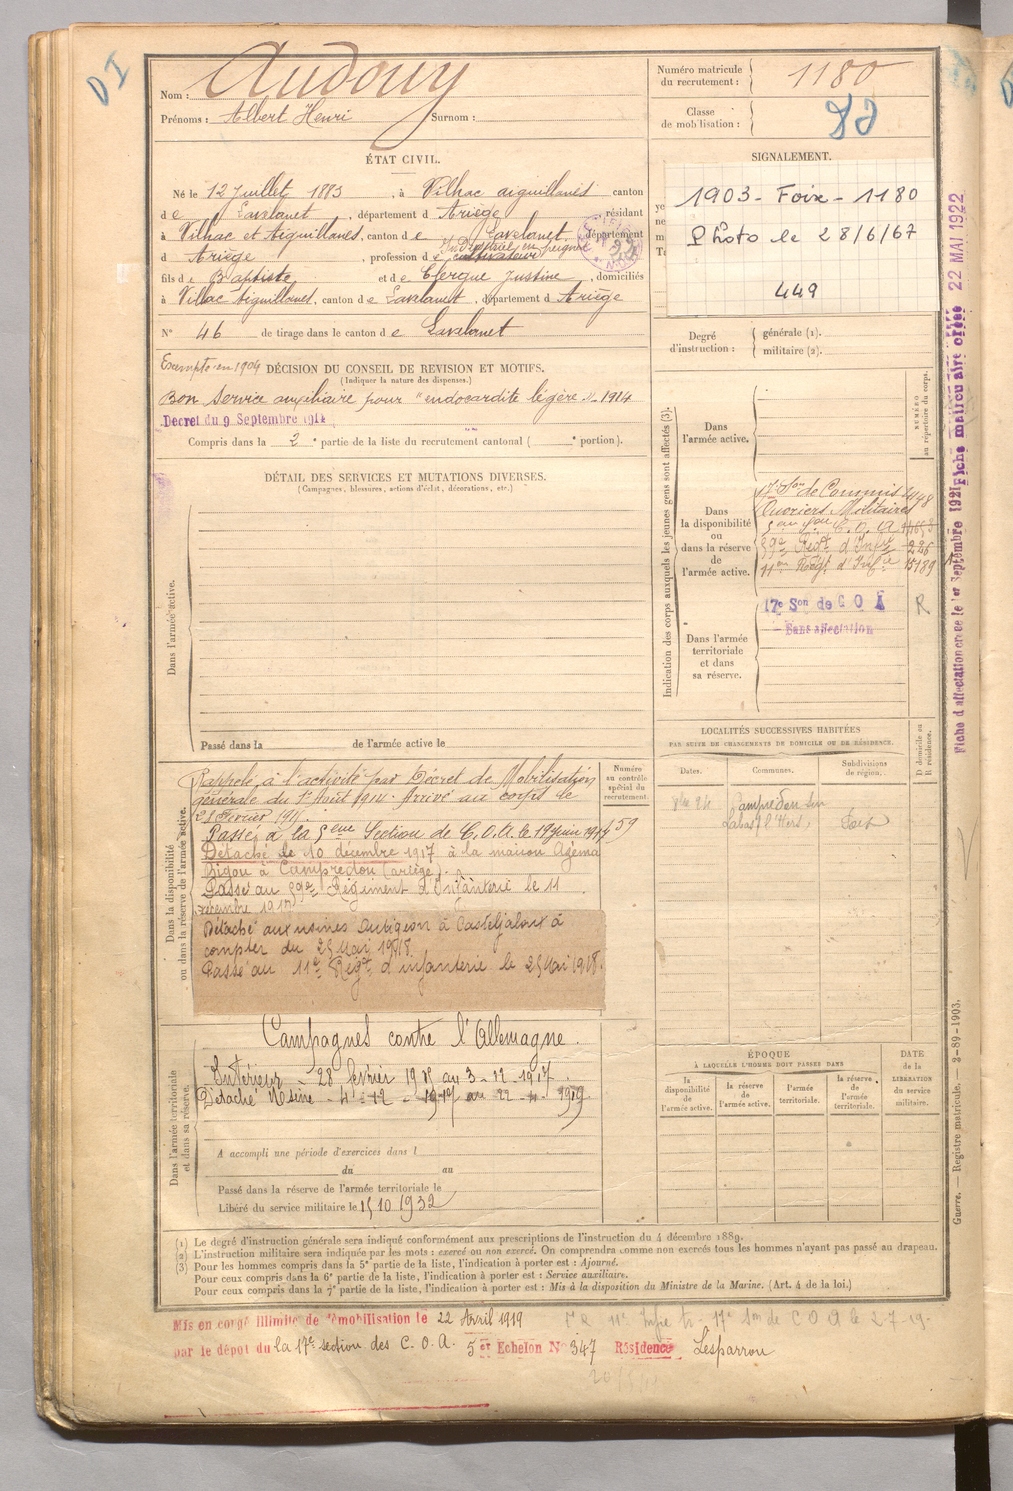 DI
Nom : Audouy
Prénoms : Albert Henri Surnom :
Numéro matricule du recrutement : 1180
Classe de mobilisation :
ÉTAT CIVIL.
Né le 12 Juillet 1883, à Vilhac aiguillanes canton
de Lavelanet, département d Ariège résidant
à Vilhac et Aiguillanes, canton de Lavelanet, département
d Ariège, profession de cultivateur
fils de Baptiste et de Clergue Justine, domiciliés
à Villac Aiguillanes, canton de Lavelanet, département d Ariège
N° 46 de tirage dans le canton de Lavelanet
SIGNALEMENT.
1903 - Foix - 1180
Photo le 28/6/67
449
Degré d'instruction : générale (1). militaire (2).
Exempté en 1904 DÉCISION DU CONSEIL DE REVISION ET MOTIFS.
(Indiquer la nature des dispenses.)
Bon service auxiliaire pour "endocardite légère" 1914
Décret du 9 Septembre 1914
Compris dans la 2e partie de la liste du recrutement cantonal ( e portion).
DÉTAIL DES SERVICES ET MUTATIONS DIVERSES.
(Campagnes, blessures, actions d'éclat, décorations, etc.)
Dans l'armée active.
Passé dans la de l'armée active le
Indication des corps auxquels les jeunes gens sont affectés (3).
NUMÉRO au répertoire du corps.
Dans l'armée active.
Dans la disponibilité ou dans la réserve de l'armée active.
17e Son de Commis
Ouvriers Militaires
C.O.A
Regt d'Infie
11e Regt d'Infie 15189
17e Son de C O A R
Sans affectation
Dans l'armée territoriale et dans sa réserve.
Fiche d'affectation créée le 1er Septembre 1921 Fiche matriculaire créée 22 MAI 1922
LOCALITÉS SUCCESSIVES HABITÉES
PAR SUITE DE CHANGEMENTS DE DOMICILE OU DE RÉSIDENCE.
D domicile ou R résidence.
Dates. Communes. Subdivisions de région.
Campredon sur
l'Hers. Foix
Dans la disponibilité ou dans la réserve de l'armée active.
Numéro au contrôle spécial du recrutement.
Rappelé à l'activité par Décret de Mobilisation
générale du 1er Août 1914. Arrivé au corps le
28 Février 1915.
Passé à la 5eme Section de C.O.A. le 19 juin 59
Détaché le 10 décembre 1917 à la maison Azema
Bigou à Campredon (ariège).
Passé au 59e Régiment d'Infanterie le 11
décembre 1917
Détaché aux usines à Casteljaloux à
compter du 25 Mai 1918.
Passé au 11e Regt d'infanterie le 25 Mai 1918.
Dans l'armée territoriale et dans sa réserve.
Campagnes contre l'Allemagne.
Intérieur - 28 février 1915 au 3-12-1917.
Détaché Usine - 4-12-1917 au 22-4-1919
A accompli une période d'exercices dans l
du au
Passé dans la réserve de l'armée territoriale le
Libéré du service militaire le 15 10 1932
ÉPOQUE
À LAQUELLE L'HOMME DOIT PASSER DANS
la disponibilité de l'armée active. la réserve de l'armée active. l'armée territoriale. la réserve de l'armée territoriale.
DATE de la LIBÉRATION du service militaire.
(1) Le degré d'instruction générale sera indiqué conformément aux prescriptions de l'instruction du 4 décembre 1889.
(2) L'instruction militaire sera indiquée par les mots : exercé ou non exercé. On comprendra comme non exercés tous les hommes n'ayant pas passé au drapeau.
(3) Pour les hommes compris dans la 5e partie de la liste, l'indication à porter est : Ajourné.
Pour ceux compris dans la 6e partie de la liste, l'indication à porter est : Service auxiliaire.
Pour ceux compris dans la 7e partie de la liste, l'indication à porter est : Mis à la disposition du Ministre de la Marine. (Art. 4 de la loi.)
Guerre. — Registre matricule. — 2-89-1903.
Mis en congé illimité de démobilisation le 22 Avril 1919
par le dépôt du la 17e section des C.O.A. 5er Echelon N° 347 Résidence Lesparrou